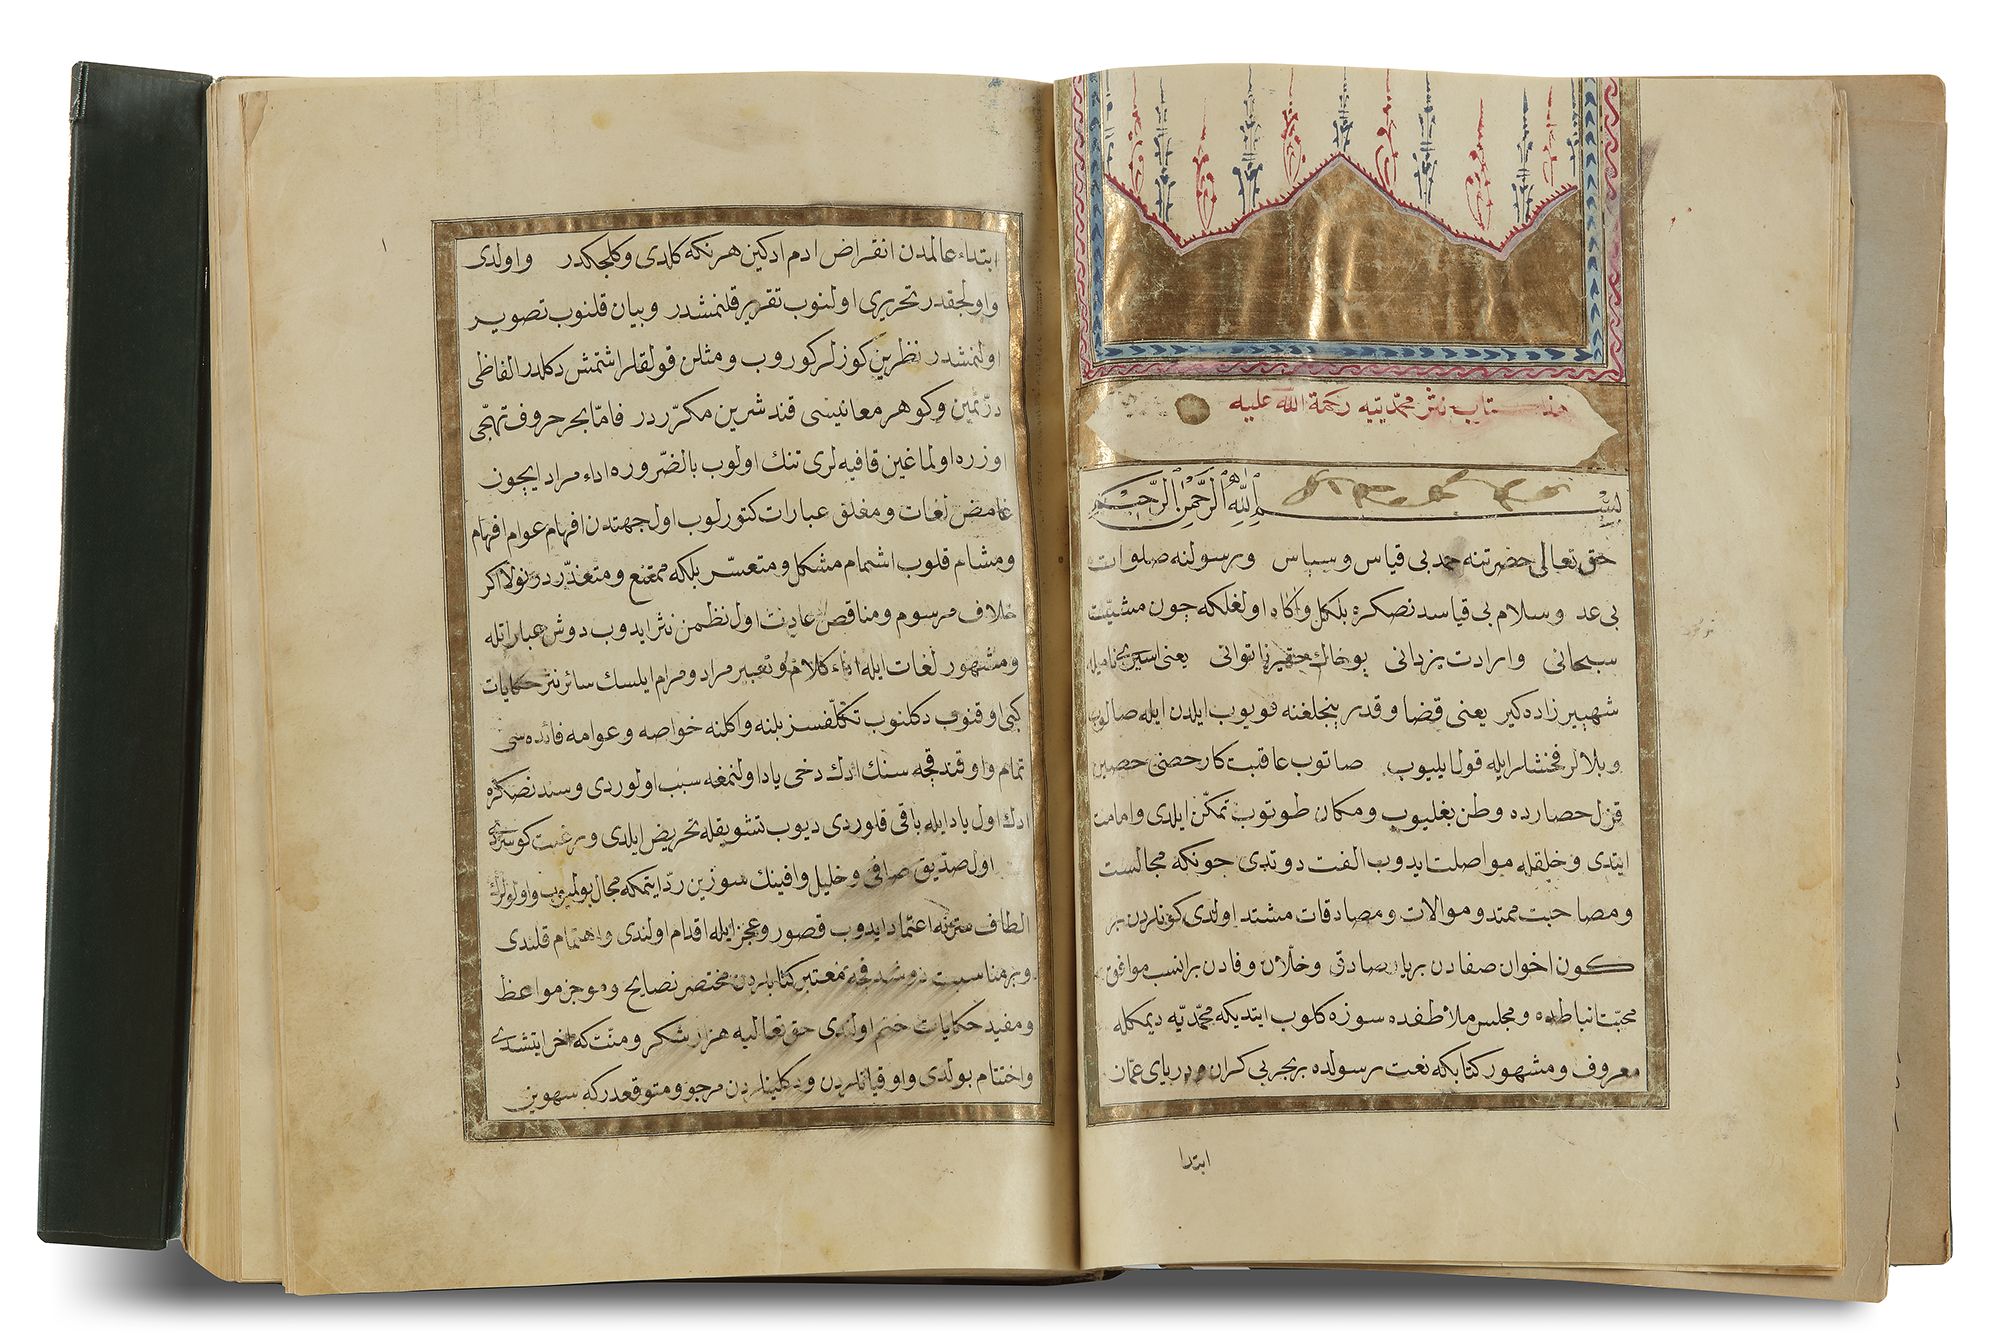 هذا كتاب نثر محمديّيه رحمة الله عليه
بسم الله الرحمن الرحيم
حق تعالى حضرتنه حمد بی قیاس و سپاس و رسولنه صلوات
بی عد و سلام بی قیاسدنصكره بلكل و اكاه اولغلكه چون مشیّت
سبحانی و ارادت یزدانی بو خاك حقیر ناتوانی یعنی اسیری
شهبیر زاده کیر یعنی قضا و قدر پنجلغنه قویوب ایلدن ایله صالوب
و بلالر فخشلر ایله قول ایلیوب صاتوب عاقبت كار حصنی حصین
قزل حصارده وطن بغلیوب و مكان طوتوب تمكّن ایلدی و امامت
ایتدی و خلقله مواصلت ایدوب الفت دوتدی چونكه مجالست
و مصاحبت ممتد و موالات و مصادقات مشتد اولدی كونلردن بر
كون اخوان صفادن بر یار صادق و خلّان وفادن بر انسب موافق
محبّت انباطده و مجلس ملاطفده سوزه كلوب ایتدیكه محمّدیّه دیمكله
معروف و مشهور كتابكه نعت رسولده بر بحر بی كران و دریای عمّان
ابتدا
ابتداء عالمدن انقراض ادم ادكین هر نكه كلدی و كلجكدر و اولدی
و اولجقدر تحریری اولنوب تقریر قلنمشدر و بیان قلنوب تصویر
اولنمشدر نظرین كوزلر كوروب و مثلن قولقلر اشتمش دكلدر الفاظی
درّ ثمین و كوهر معانیسی قند شرین مكرّردر فامّا بحر حروف تهجّی
اوزره اولماغین قافیه لری تنك اولوب بالضّروره اداء مراد ایچون
غامض لغات و مغلق عبارات كتورلوب اول جهتدن افهام عوام افهام
و مشام قلوب اشمام مشكل و متعسّر بلكه ممتنع و متعذّردر نولا اكر
خلاف مرسوم و مناقص عادت اول نظمن نثر ایدوب دوش عباراتله
و مشهور لغات ایله اداء كلام و تعبیر مراد و مرام ایلسك سائر نثر حكایات
كبی اوقنوب دكلنوب تكلّفسز بلنه و اكلنه خواصه و عوامه فائده سی
تمام و اوقندقجه سنك ادك دخی یاد اولنمغه سبب اولوردی و سندنصكره
ادك اول یاد ایله باقی قلوردی دیوب تشویقله تحریض ایلدی و رغبت كوستردی
اول صدّیق صافی و خلیل وافینك سوزین ردّ ایتمكه مجال بولمیوب و اولولرك
الطاف سترنه اعتماد ایدوب قصور و عجز ایله اقدام اولندی و اهتمام قلندی
و بر مناسبت دوشدقجه معتبر كتابلردن مختصر نصایح و موجز مواعظ
و مفید حكایات ختم اولندی حق تعالیه هزار شكر و منّت كه اخر ایتشدی
و اختتام بولدی و اوقیانلردن و دكلینلردن مرجو و متوقعدركه سهوین